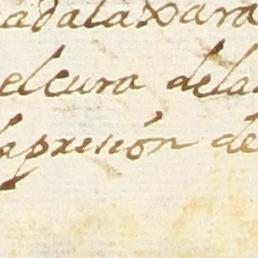 adalaxara
el cura dela
la presión de